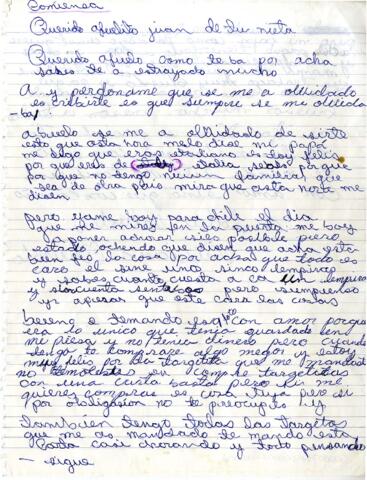 Comiensa
Querido afuelito juan de tu nieta
Querido afuelo como te ba por acha
sabes te a estrayado mucho
A y perdoname que se me a olbidado
escribirte es que siempre se mi olbida
- bay
abuelo se me a olbidado de sirte
esto que asta hora melo dise mi papá
me dego que eras etaliano estoy felis
por que eres de italia sabes porque
por que no tengo niuna familia que
sea de otro pais mira que asta norte me
disen
pero yame boy para chile el dia
que me mires en la puerta me boy
a poner a chorar si es posible piero
estado ochendo que disen que acha esta
bien feo la cosa por acha que todo es
caro el sine una sinco lempiras
y sabes cuanta cuesta a ca un lempira
y sincuenta pero limpienso
y apesar que este caras las cosas
bereng e temando es que con amor porque
sea lo unico que tenia guardado en
mi piesa y no tenia dinero pero cuando
tenga te comprare algo megor y estoy
muy felis por la targeta que me mandaste
no temolestes en comprar targetitas
con una carta basta pero si me
quieres comprar es cosa tuya pero si
por obligasion no te preocupes
tambien tengo todas las targetas
que me as mandado te mando esta
carta casi chorando y todo pensando
- sigue